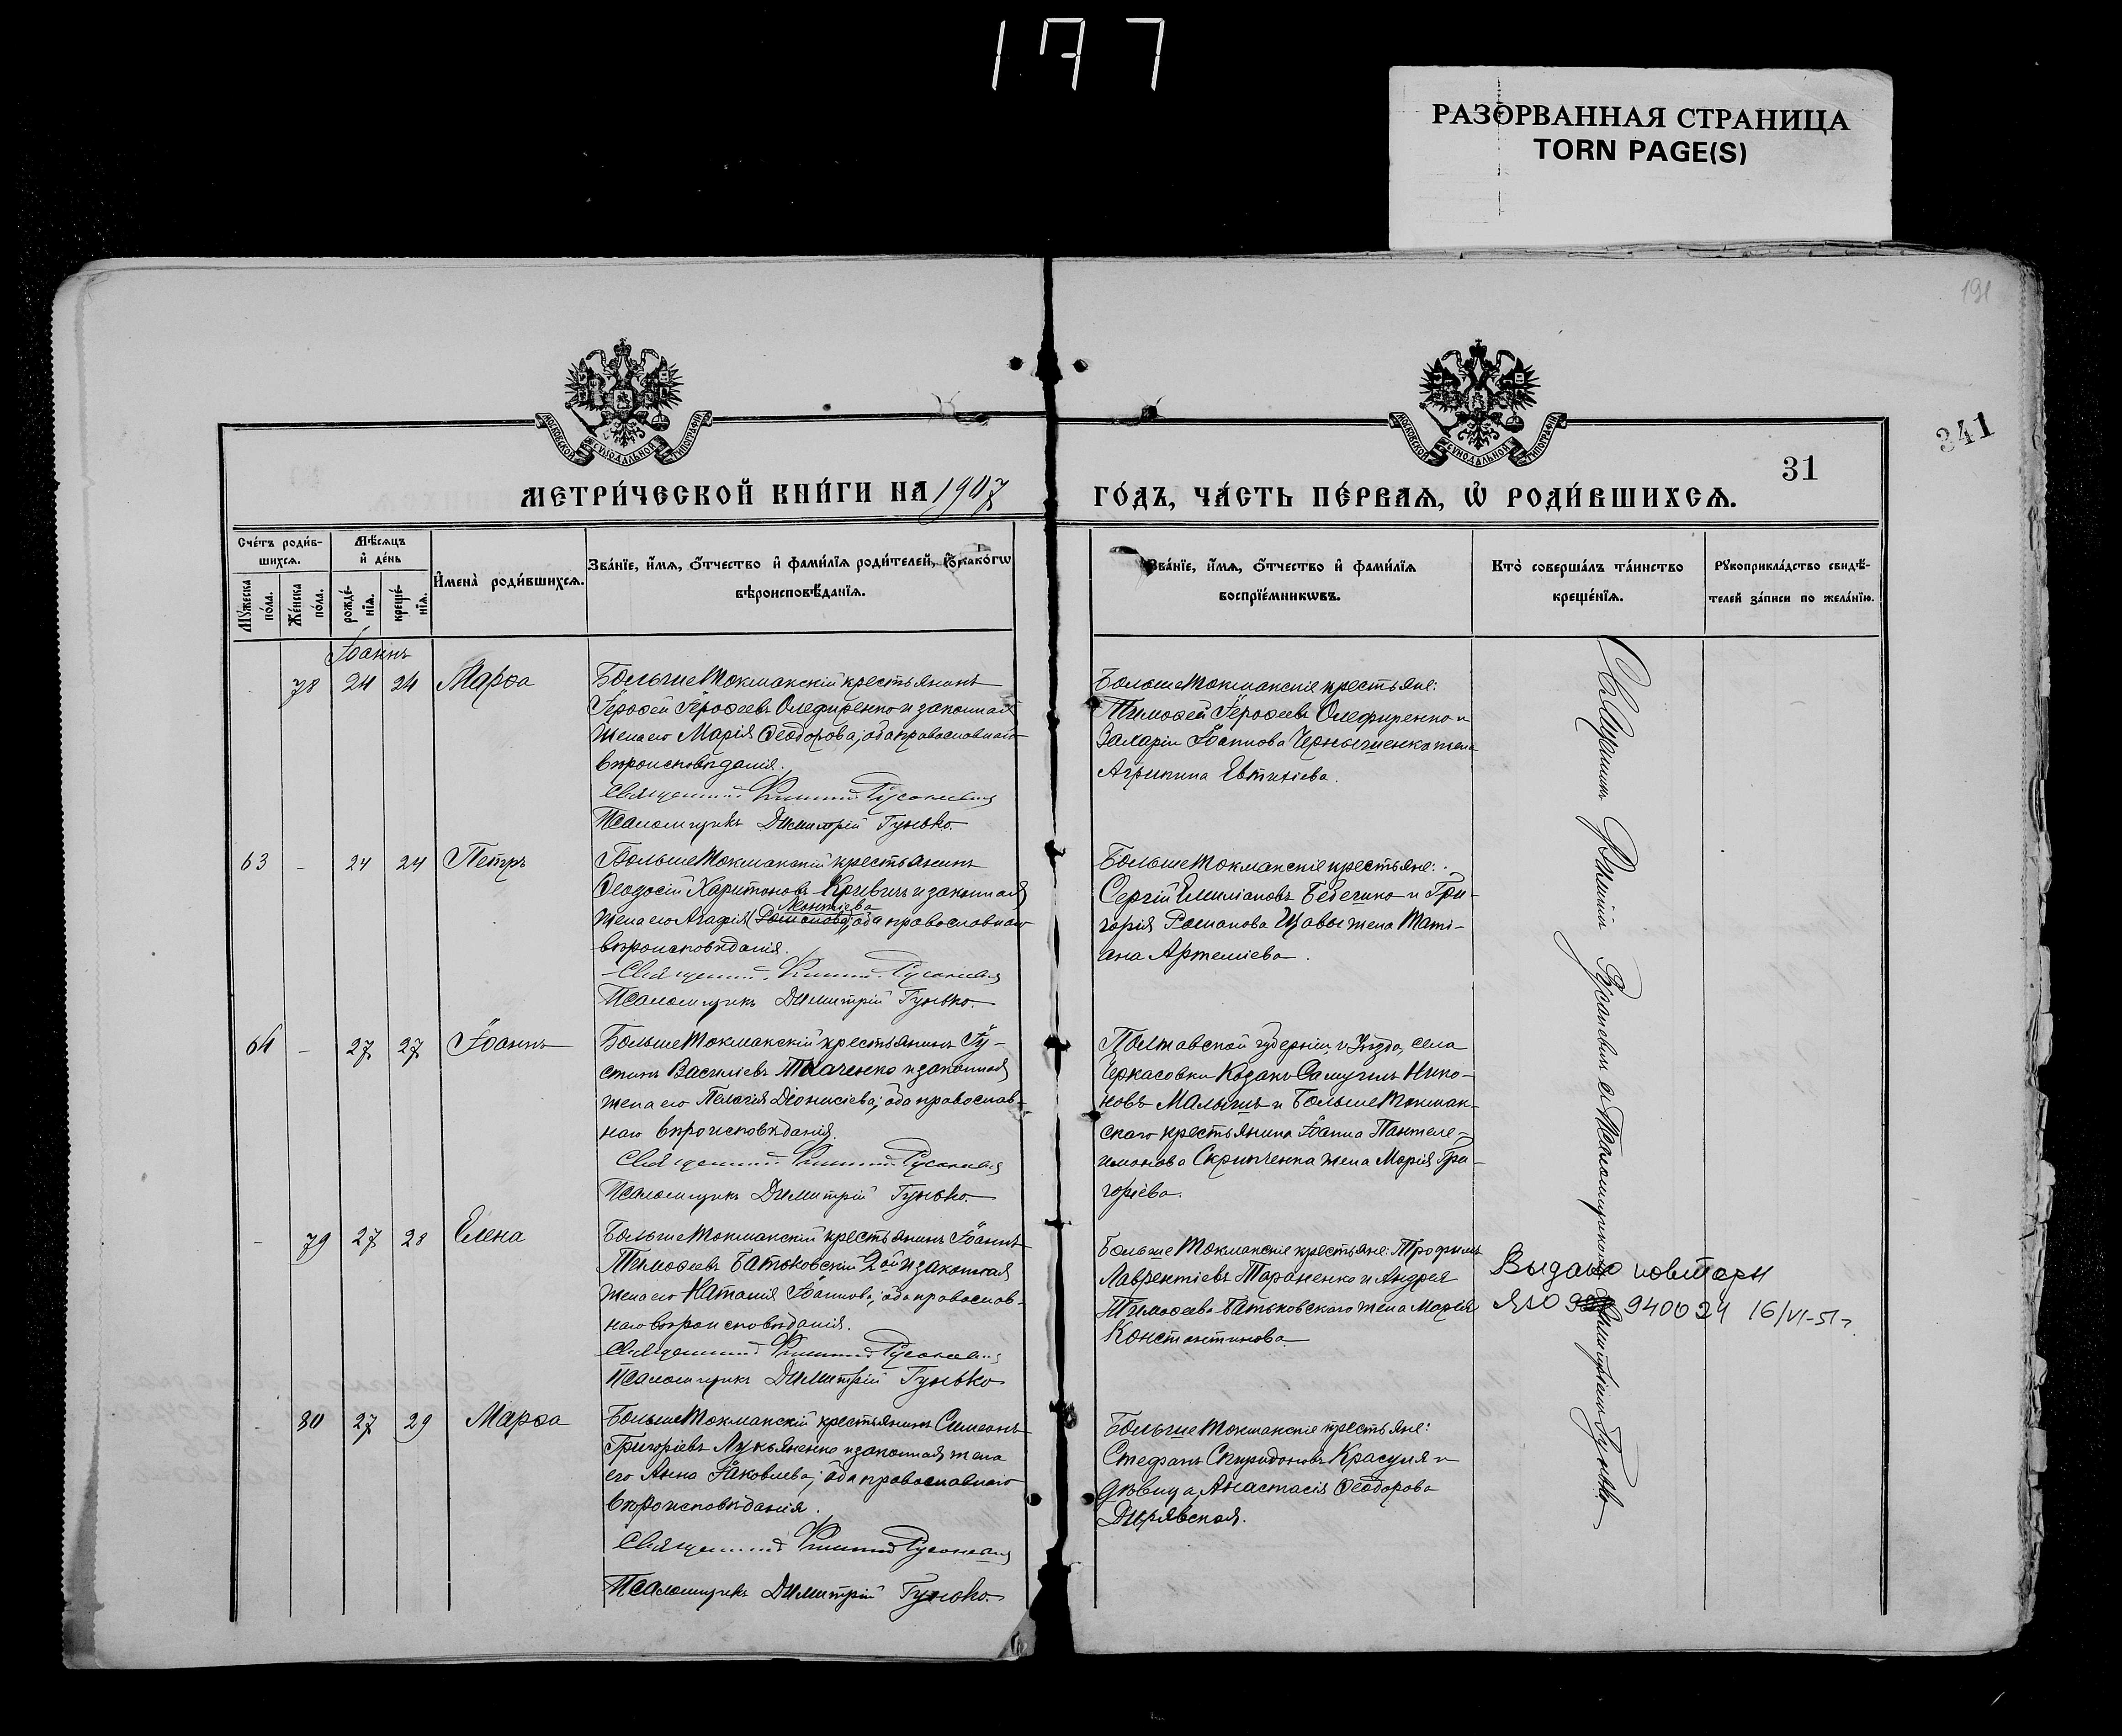 177
РАЗОРВАННАЯ СТРАНИЦА
TORN PAGE(S)
191
341
31
МОСКОВСКОЙ СѴНОДАЛЬНОЙ ТИПОГРАФІИ
МОСКОВСКОЙ СѴНОДАЛЬНОЙ ТИПОГРАФІИ
МЕТРИ́ЧЕСКОЙ КНИ́ГИ НА 1907
ГО́ДЪ, ЧА́СТЬ ПЕ́РВАѦ, Ѡ҆ РОДИ́ВШИХСѦ.
Сче́тъ роди́в-
шихсѧ.
Мѣ́сѧцъ
и҆ де́нь
Мꙋ́жеска
по́ла.
Же́нска
по́ла.
рожде́-
нїѧ.
креще́-
нїѧ.
И҆мена̀ роди́вшихсѧ.
Зва́нїе, и҆́мѧ, ѻ҆́тчество и҆ фами́лїѧ роди́телей, и҆ како́гѡ
вѣроисповѣ́данїѧ.
Зва́нїе, и҆́мѧ, ѻ҆́тчество и҆ фами́лїѧ
воспрїе́мникѡвъ.
Кто̀ соверша́лъ та́инство
креще́нїѧ.
Рꙋкоприкла́дство свидѣ́-
телей за́писи по жела́нїю.
Іюань
78 24 24 Марѳа
Больше Токмакскій крестьянинъ
Іероѳей Іероѳеевъ Олефиренко и законная
жена его Марія Ѳеодорова; оба православнаго
вѣроисповѣданія.
Священникъ Филиппъ Русаневичъ
Псаломщикъ Димитрій Гунько.
Больше Токмакскіе крестьяне:
Тимоѳей Іероѳеевъ Олефиренко и
Захаріи Іоаннова Чернышенка жена
Агрипина Евтихіева.
63 - 24 24 Петръ
Больше Токмакскій крестьянинъ
Ѳеодосій Харитоновъ Кривичъ и законная
Леонтіева
жена его Агафія (Романова) оба православнаго
вѣроисповѣданія.
Священникъ Филиппъ Русаневичъ
Псаломщикъ Димитрій Гунько.
Больше Токмакскіе крестьяне:
Сергій Емиліановъ Бебешко и Гри-
горія Романова Щавы жена Тати-
ана Артеміева.
64 - 27 27 Іоаннъ
Больше Токмакскій крестьянинъ Іу-
стинъ Василіевъ Ткаченко и законная
жена его Пелагія Діонисіева; оба православ-
наго вѣроисповѣданія.
Священникъ Филиппъ Русаневичъ
Псаломщикъ Димитрій Гунько.
Полтавской губерніи, и уѣзда, села
Черкасовки Козакъ Самуилъ Нико-
новъ Малышъ и Больше Токмак-
скаго крестьянина Іоанна Пантеле-
имонова Скрипченка жена Марія Гри-
горіева.
- 79 27 28 Елена
Больше Токмакскій крестьянинъ Іоаннъ
Тимоѳеевъ Батьковскій 2ой и законная
жена его Наталія Іоаннова; оба православ-
наго вѣроисповѣданія.
Священникъ Филиппъ Русаневичъ
Псаломщикъ Димитрій Гунько
Больше Токмакскіе крестьяне: Трофимъ
Лаврентіевъ Тараненко и Андрея
Тимоѳеева Батьковскаго жена Марія
Константинова
Выдано повторн
ЯЮ 940024 16/VI-51г.
- 80 27 29 Марѳа
Больше Токмакскій крестьянинъ Симеонъ
Григоріевъ Лукьяненко и законная жена
его Анна Іаковлева; оба православнаго
вѣроисповѣданія.
Священникъ Филиппъ Русаневичъ
Псаломщикъ Димитрій Гунько.
Больше Токмакскіе крестьяне:
Стефанъ Спиридоновъ Красуля и
дѣвица Анастасія Ѳеодорова
Дырявская.
Священникъ Филиппъ Русаневичъ съ Псаломщикомъ Димитріемъ Гунько